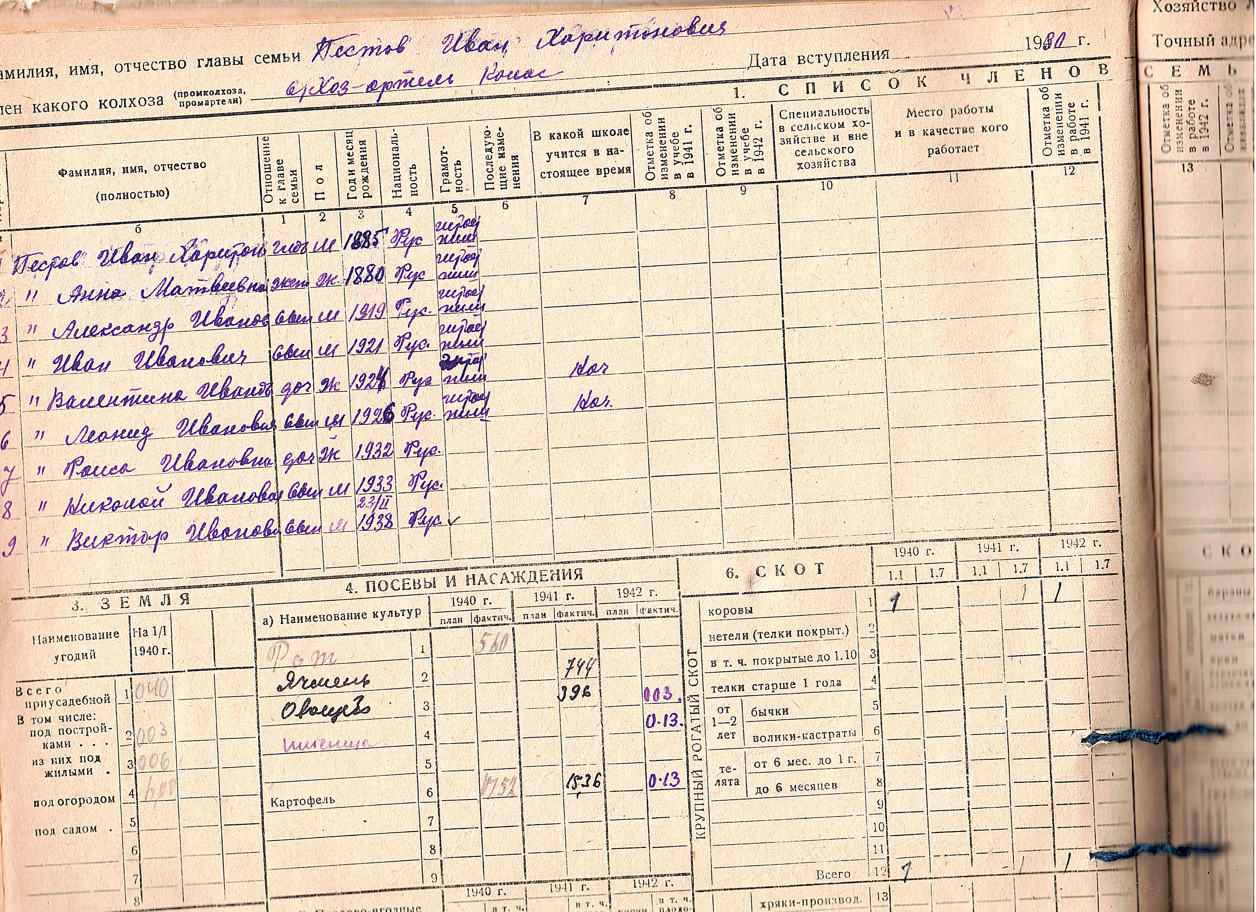 Хозяйство
амилия, имя, отчество главы семьи Пестов Иван Харитонович
Точный адре
лен какого колхоза (промколхоза, промартели) с/Хоз-артель
Дата вступления 1930 г.
1. СПИСОК ЧЛЕНОВ
СЕМЬ
Фамилия, имя, отчество (полностью)
Отношение к главе семьи
Пол
Год и месяц рождения
Националь- ность
Грамот- ность
Последую- щие изме- нения
В какой школе учится в на- стоящее время
Отметка об изменении в учебе в 1941 г.
Отметка об изменении в учебе в 1942 г.
Специальность в сельском хо- зяйстве и вне сельского хозяйства
Место работы и в качестве кого работает
Отметка об изменении в работе в 1941 г.
Отметка об изменении в работе в 1942 г.
б 1 2 3 4 5 6 7 8 9 10 11 12 13
Пестов Иван Харитон м 1885 Рус
" Анна Матвеевна жен ж. 1880 Рус
3 " Александр Иванов сын м 1919 Рус.
4 " Иван Иванович сын м 1921 Рус.
5 " Валентина Иванов доч ж 1924 Рус Нач
6 " Леонид Иванович сын м 1926 Рус. Нач.
7 " Раиса Ивановна доч ж 1932 Рус.
8 " Николай Иванова сын м 1933 Рус.
23/II
9 " Виктор Иванови сын м 1938 Рус
3. ЗЕМЛЯ
Наименование угодий
На 1/I 1940 г.
Всего приусадебной 1 040
В том числе:
под построй- ками . . . 2 003
из них под жилыми . 3 006
под огородом 4
под садом . 5
6
7
8
4. ПОСЕВЫ И НАСАЖДЕНИЯ
а) Наименование культур
1940 г. 1941 г. 1942 г.
план фактич. план фактич. план фактич.
1 560
Ячмень 2 744
3 396 003.
4 0·13.
пшеница
5
Картофель 6 1752 1536 0·13
7
8
9
1940 г. 1941 г. 1942 г.
6. СКОТ
1940 г. 1941 г. 1942 г.
1.1 1.7 1.1 1.7 1.1 1.7
КРУПНЫЙ РОГАТЫЙ СКОТ
коровы 1 1 1 1
нетели (телки покрыт.) 2
в т. ч. покрытые до 1.10 3
телки старше 1 года 4
от 1—2 лет
бычки 5
волики-кастраты 6
те- лята
от 6 мес. до 1 г. 7
до 6 месяцев 8
9
10
11
Всего 12 1 1 1
хряки-производ. 13
СКО